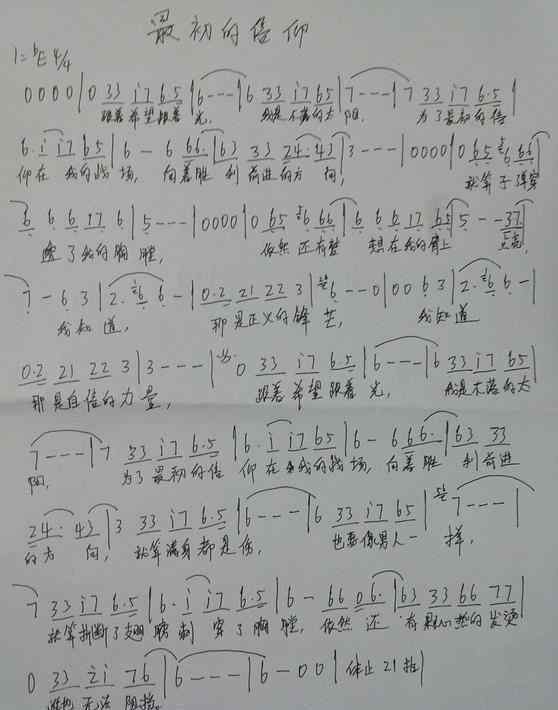 最初的信仰
1=bE 4/4
0 0 0 0 | 0 33 i7 6.5 | 6 - - - | 6 33 i7 65 | 7 - - - | 7 33 i7 6.5 |
跟着希望跟着 光, 我是不落的太 阳, 为了最初的信
6. i i7 65 | 6 - 6 66. | 63 33 24. 43 | 3 - - - | 0000 | 0 65 6 66 |
仰在 我的战 场, 向着胜 利 前进的方 向, 就算子弹穿
6 6 6 17 6 | 5 - - - | 0000 | 0 65 6 66 | 6 6 6 17 65 | 5 - - 37 |
透 了我的胸 膛, 依然 还有梦 想在我的肩上
7 - 6 3 | 2. 6 6 - | 0.2 21 22 3 | 6 - - 0 | 0 0 6 3 | 2. 6 6 - |
我知 道, 那是正义的锋 芒, 我知道
0.2 21 22 3 | 3 - - - | 0 33 i7 6.5 | 6 - - - | 6 33 i7 65 |
那是自信的力 量, 跟着希望跟着 光, 我是不落的太
7 - - - | 7 33 i7 6.5 | 6. i i7 65 | 6 - 6 66. | 63 33
阳, 为了最初的信 仰在 我的战 场, 向着胜 利前进
24. 43 | 3 33 i7 6.5 | 6 - - - | 6 33 i7 65 | 7 - - - |
的方 向, 就算满身都是伤, 也要像男人一 样,
7 33 i7 6.5 | 6. i i7 6.5 | 6 - 66 06. | 63 33 66 77 |
就算折断了翅膀刺 穿了胸 膛, 依然 还 有颗心热的发烫
0 33 2i 76 | 6 - - - | 6 - 0 0 | 休止21拍 |
无法 阻挡。